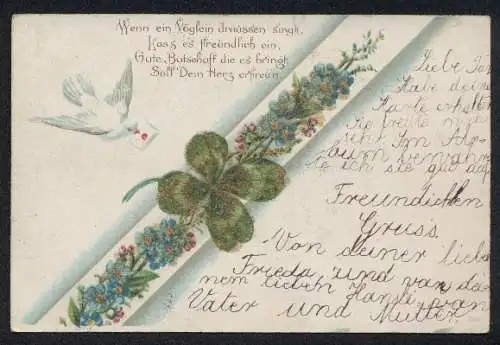 Wenn ein Vöglein draussen singt,
Lass es freundlich ein,
Gute Botschaft die es bringt
Soll Dein Herz erfreun.
Liebe
Habe deine
Karte erhalten
Sie freute mich
Im Alp
bum verwahr
te ich sie gut auf
Freundlichen
Gruss
Von deiner lieb
Frieda und von dei
nem lieben Hansli von
Vater und Mutter